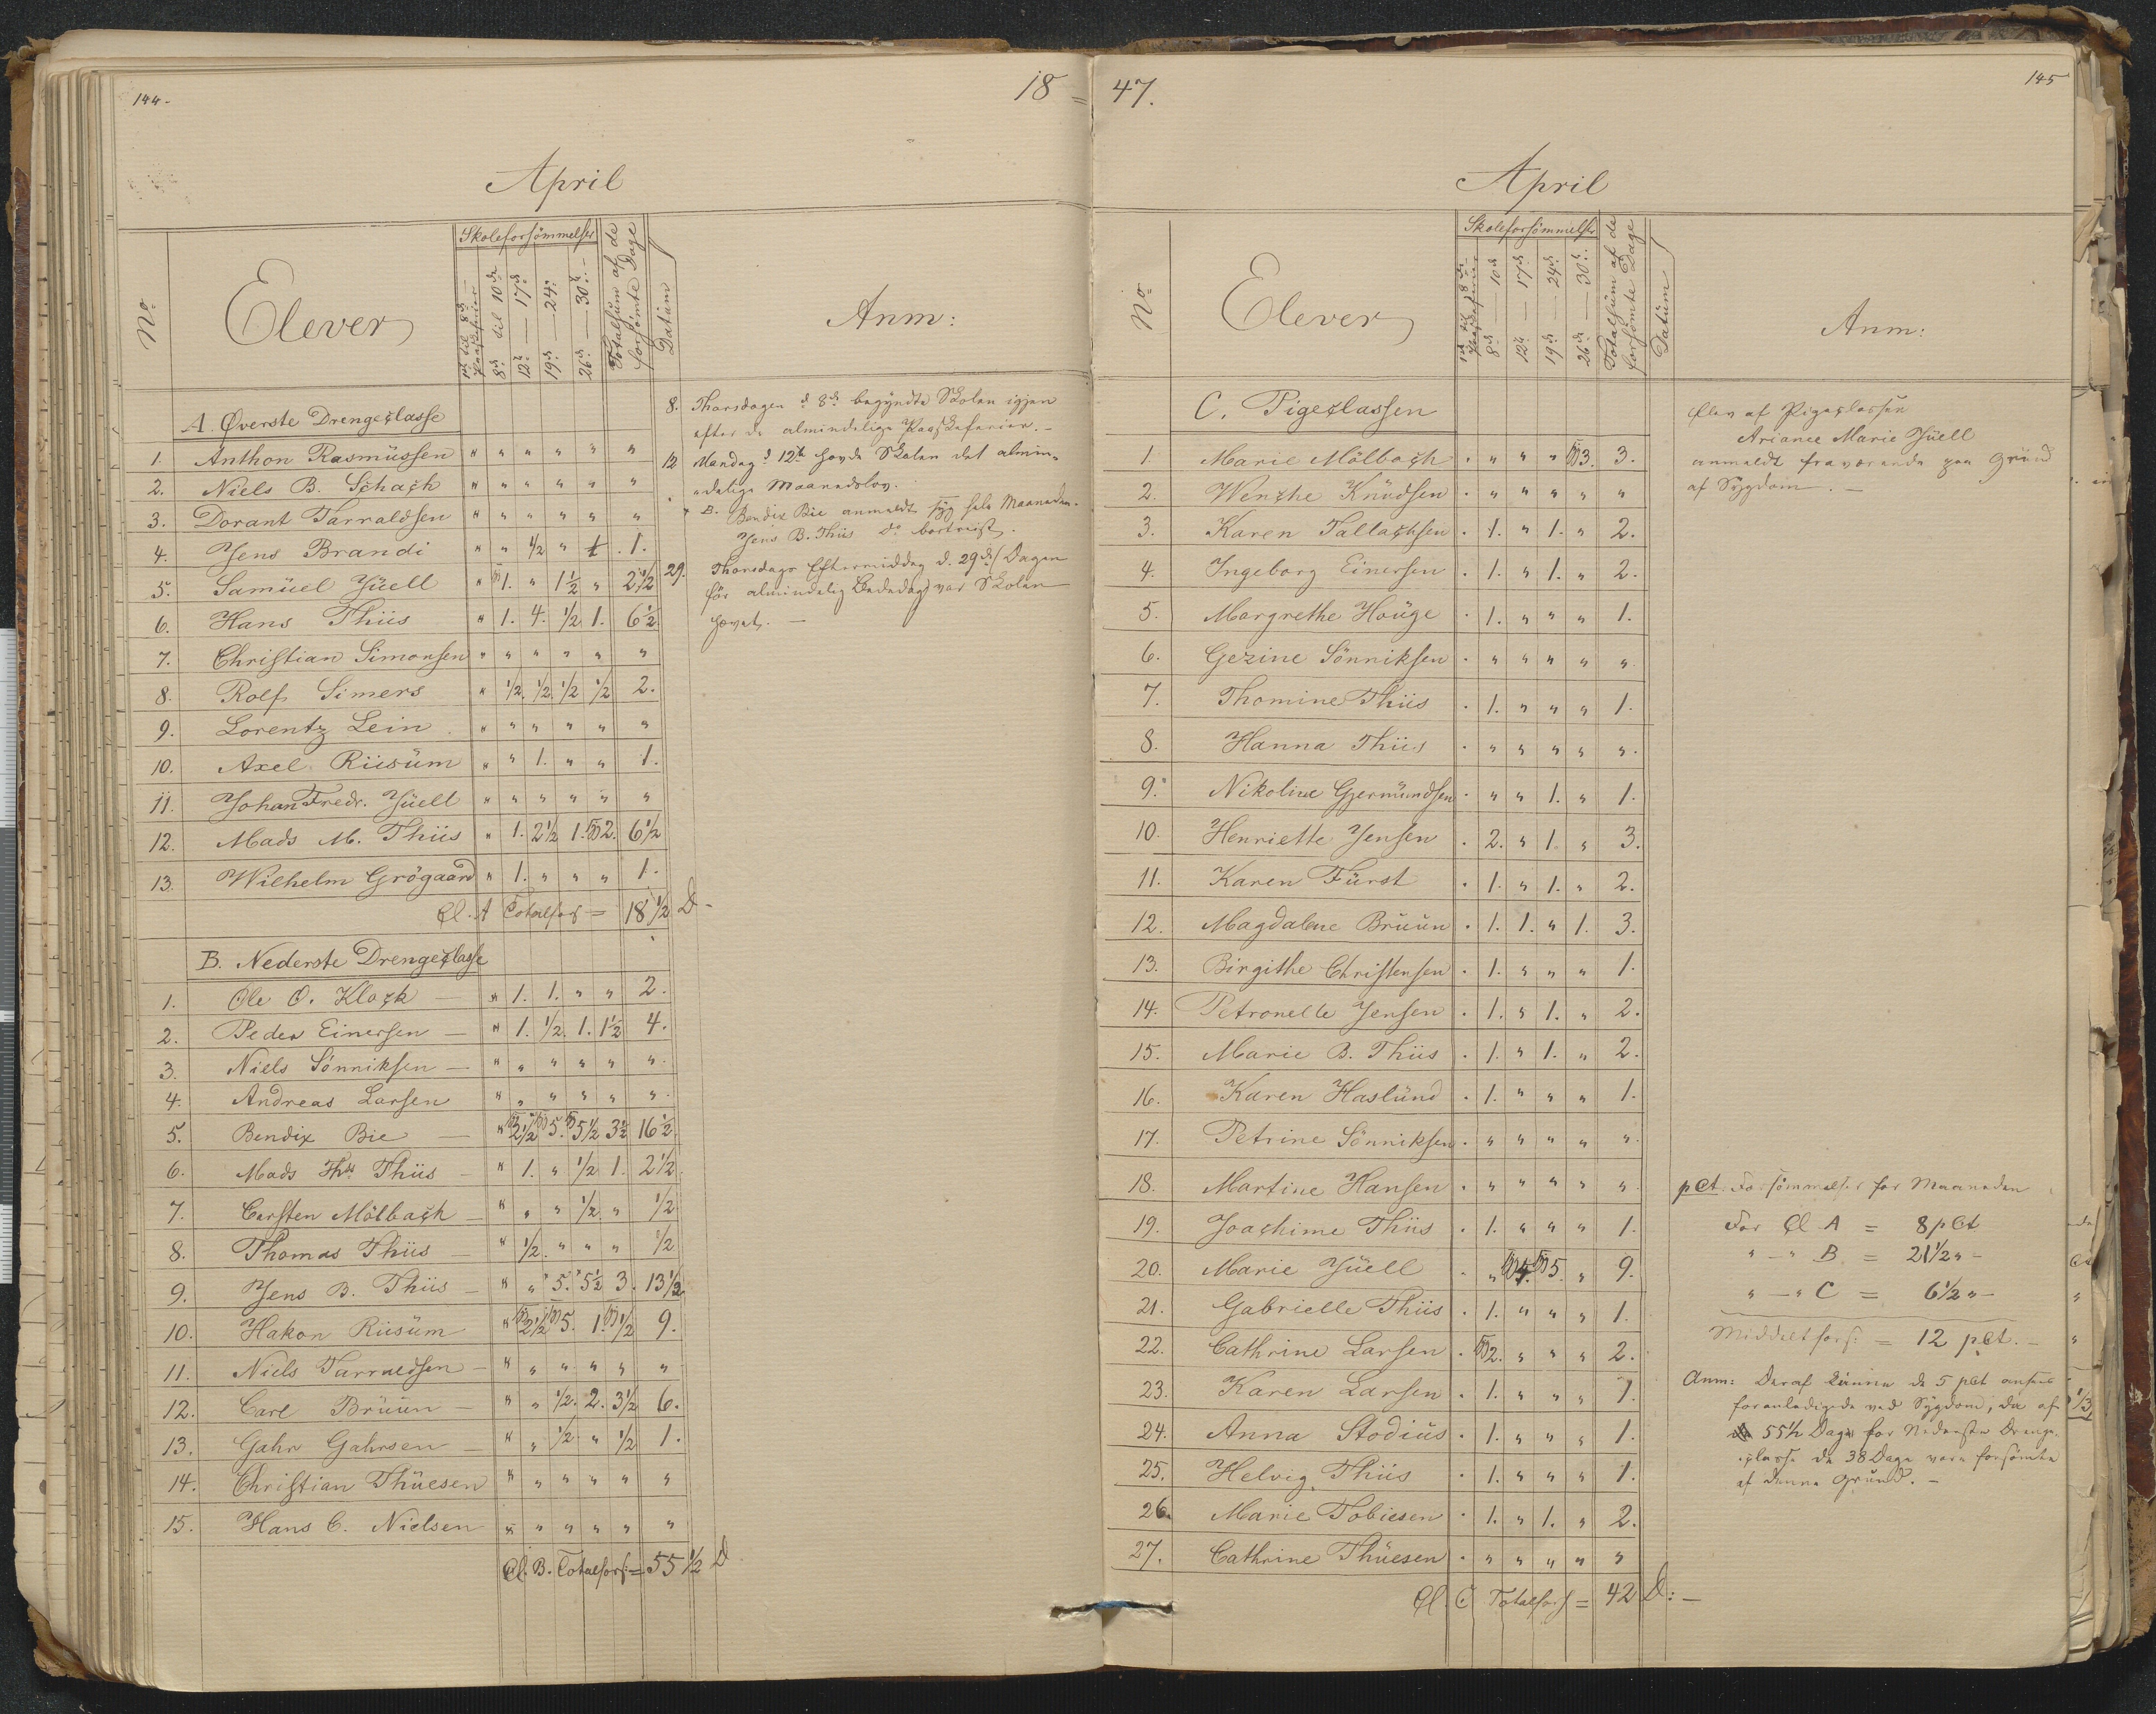 144.
18 =
April
No
Elever
Skoleforsömmelser
1ste til 8de Paaskeferier
8de til 10de
12te — 17de
19de — 24de
26de — 30te
Totalsüm af de forsömte Dage
Datüm
Anm:
A. Øverste Drengeclasse
1. Anthon Rasmüssen " " " " " "
2. Niels B. Schach " " " " " "
3. Dorant Tarraldsen " " " " " "
4. Jens Brandi " " ½ " ½ 1.
5. Samüel Jüell " 1. " 1½ " 2½
6. Hans Thiis " 1. 4. ½ 1. 6½
7. Christian Simonsen " " " " " "
8. Rolf Simers " ½ ½ ½ ½ 2.
9. Lorentz Lein " " " " " "
10. Axel Riisüm " " 1. " " 1.
11. Johan Fredr. Jüell " " " " " "
12. Mads M. Thiis " 1. 2½ 1. 2. 6½
13. Wilhelm Grögaard " 1. " " " 1.
Cl. A Totalfors = 18½ D
B. Nederste Drengeclasse
1. Ole O. Klock " 1. 1. " " 2.
2. Peder Einersen " 1. ½ 1. 1½ 4.
3. Niels Sönniksen " " " " " "
4. Andreas Larsen " " " " " "
5. Bendix Bie " 2½ 5. 5½ 3½ 16½
6. Mads Ths Thiis " 1. " ½ 1. 2½
7. Carsten Mölbach " " " ½ " ½
8. Thomas Thiis " ½ " " " ½
9. Jens B. Thiis " " 5. 5½ 3. 13½
10. Hakon Riisüm " 2½ 5. 1. ½ 9.
11. Niels Tarraldsen " " " " " "
12. Carl Brüün " " ½ 2. 3½ 6.
13. Gahr Gahrsen " " ½ " ½ 1.
14. Christian Thüesen " " " " " "
15. Hans C. Nielsen " " " " " "
Cl. B. Totalfors: = 55½ D
8. Thorsdagen d 8de begyndte Skolen igjen
efter de almindelige Paaskeferier. –
12 Mandag d 12te havde Skolen det almin-
delige Maanedslov.
" B. Bendix Bie anmeldt syg hele Maaneden.
Jens B. Thiis do bortreist.
29. Thorsdags Eftermiddag d. 29de (Dagen
för almindelig Bededag) var Skolen
hævet. –
47.
145
April
No
Elever
Skoleforsömmelser
1ste til 8de Paaskeferier
8de — 10de
12te — 17de
19de — 24de
26de — 30te
Totalsüm af de forsömte Dage
Datüm
Anm:
C. Pigeclassen
1. Marie Mölbach . " " " 3. 3.
2. Wenche Knüdsen . " " " " "
3. Karen Tallachsen . 1. " 1. " 2.
4. Ingeborg Einersen . 1. " 1. " 2.
5. Margrethe Houge . 1. " " " 1.
6. Gezine Sönniksen . " " " " "
7. Thomine Thiis . 1. " " " 1.
8. Hanna Thiis . " " " " "
9. Nikoline Gjermündsen . " " 1. " 1.
10. Henriette Jensen . 2. " 1. " 3.
11. Karen Fürst . 1. " 1. " 2.
12. Magdalene Brüün . 1. 1. " 1. 3.
13. Birgithe Christensen . 1. " " " 1.
14. Petronelle Jensen . 1. " 1. " 2.
15. Marie B. Thiis . 1. " 1. " 2.
16. Karen Haslünd . 1. " " " 1.
17. Petrine Sönniksen . " " " " "
18. Martine Hansen . " " " " "
19. Joachime Thiis . 1. " " " 1.
20. Marie Jüell . " 4. 5. " 9.
21. Gabrielle Thiis . 1. " " " 1.
22. Cathrine Larsen . 2. " " " 2.
23. Karen Larsen . 1. " " " 1.
24. Anna Stodiüs . 1. " " " 1.
25. Helvig Thiis . 1. " " " 1.
26. Marie Tobiesen . 1. " 1. " 2.
27. Cathrine Thüesen . " " " " "
Cl. C Totalfors = 42 D: –
Elev af Pigeclassen
Ariance Marie Jüell
anmeldt fraværende paa Gründ
af Sygdom. –
pCt. Forsömmelser for Maaneden
For Cl A = 8 pCt
" – " B = 21½ " –
" – " C = 6½ " –
Middelfors: = 12 pCt. –
Anm: Deraf künne de 5 pCt ansees
foranledigede ved Sygdom, da af
55½ Dage for Nederste Drenge-
classe de 38 Dage vare forsömte
af denne Gründ. –